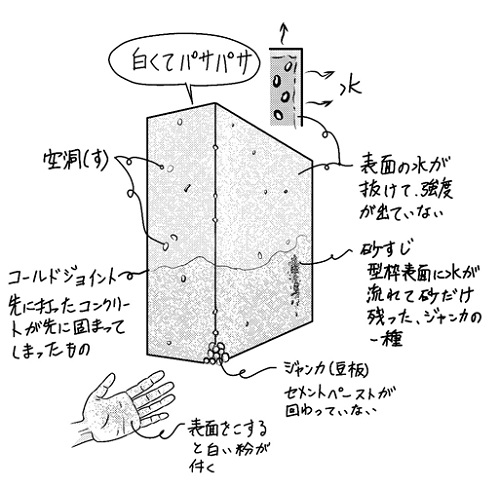 白くてパサパサ
水
空洞(す)
表面の水が
抜けて、強度
が出ていない
コールドジョイント
先に打ったコンクリー
トが先に固まって
しまったもの
砂すじ
型枠表面に水が
流れて砂だけ
残った、ジャンカの
一種
ジャンカ(豆板)
セメントペーストが
回わっていない
表面をこする
と白い粉が
付く